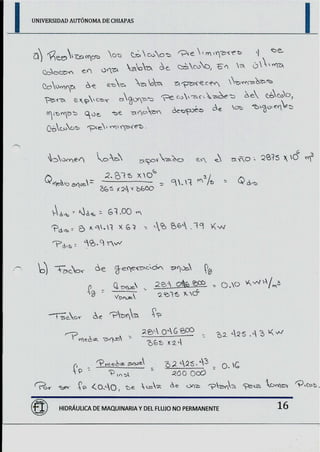 UNIVERSIDAD AUTÓNOMA DE CHIAPAS
a) Realizamos los cálculos preliminares y se
colocan en una tabla de cálculo, En la última
columna de esta tabla aparecen llamadas
para explicar algunas peculiaridades del cálculo,
mismas que se anotan después de los siguientes
cálculos preliminares.
Volumen total aportado en el año: 2875 x 10⁶ m³
Q medio anual = 2.875 x10⁶ / 365 x 24 x 3600 = 91.17 m³/s = Qds
Hds = Nds = 67.00 m
Pds = 8 x 91.17 x 67 = 48 864.79 KW
Pds = 48.9 MW
b) Factor de generación anual fg
fg = G anual / V anual = 284 046 800 / 2875 x 10⁶ = 0.10 KWH/m³
Factor de Planta fp
P media anual = 284 046 800 / 365 x 24 = 32 425.43 KW
fp = P media anual / P inst = 32 425.43 / 200 000 = 0.16
Por ser fp < 0.40, se trata de una planta para tomar Picos.
HIDRÁULICA DE MAQUINARIA Y DEL FLUJO NO PERMANENTE
16